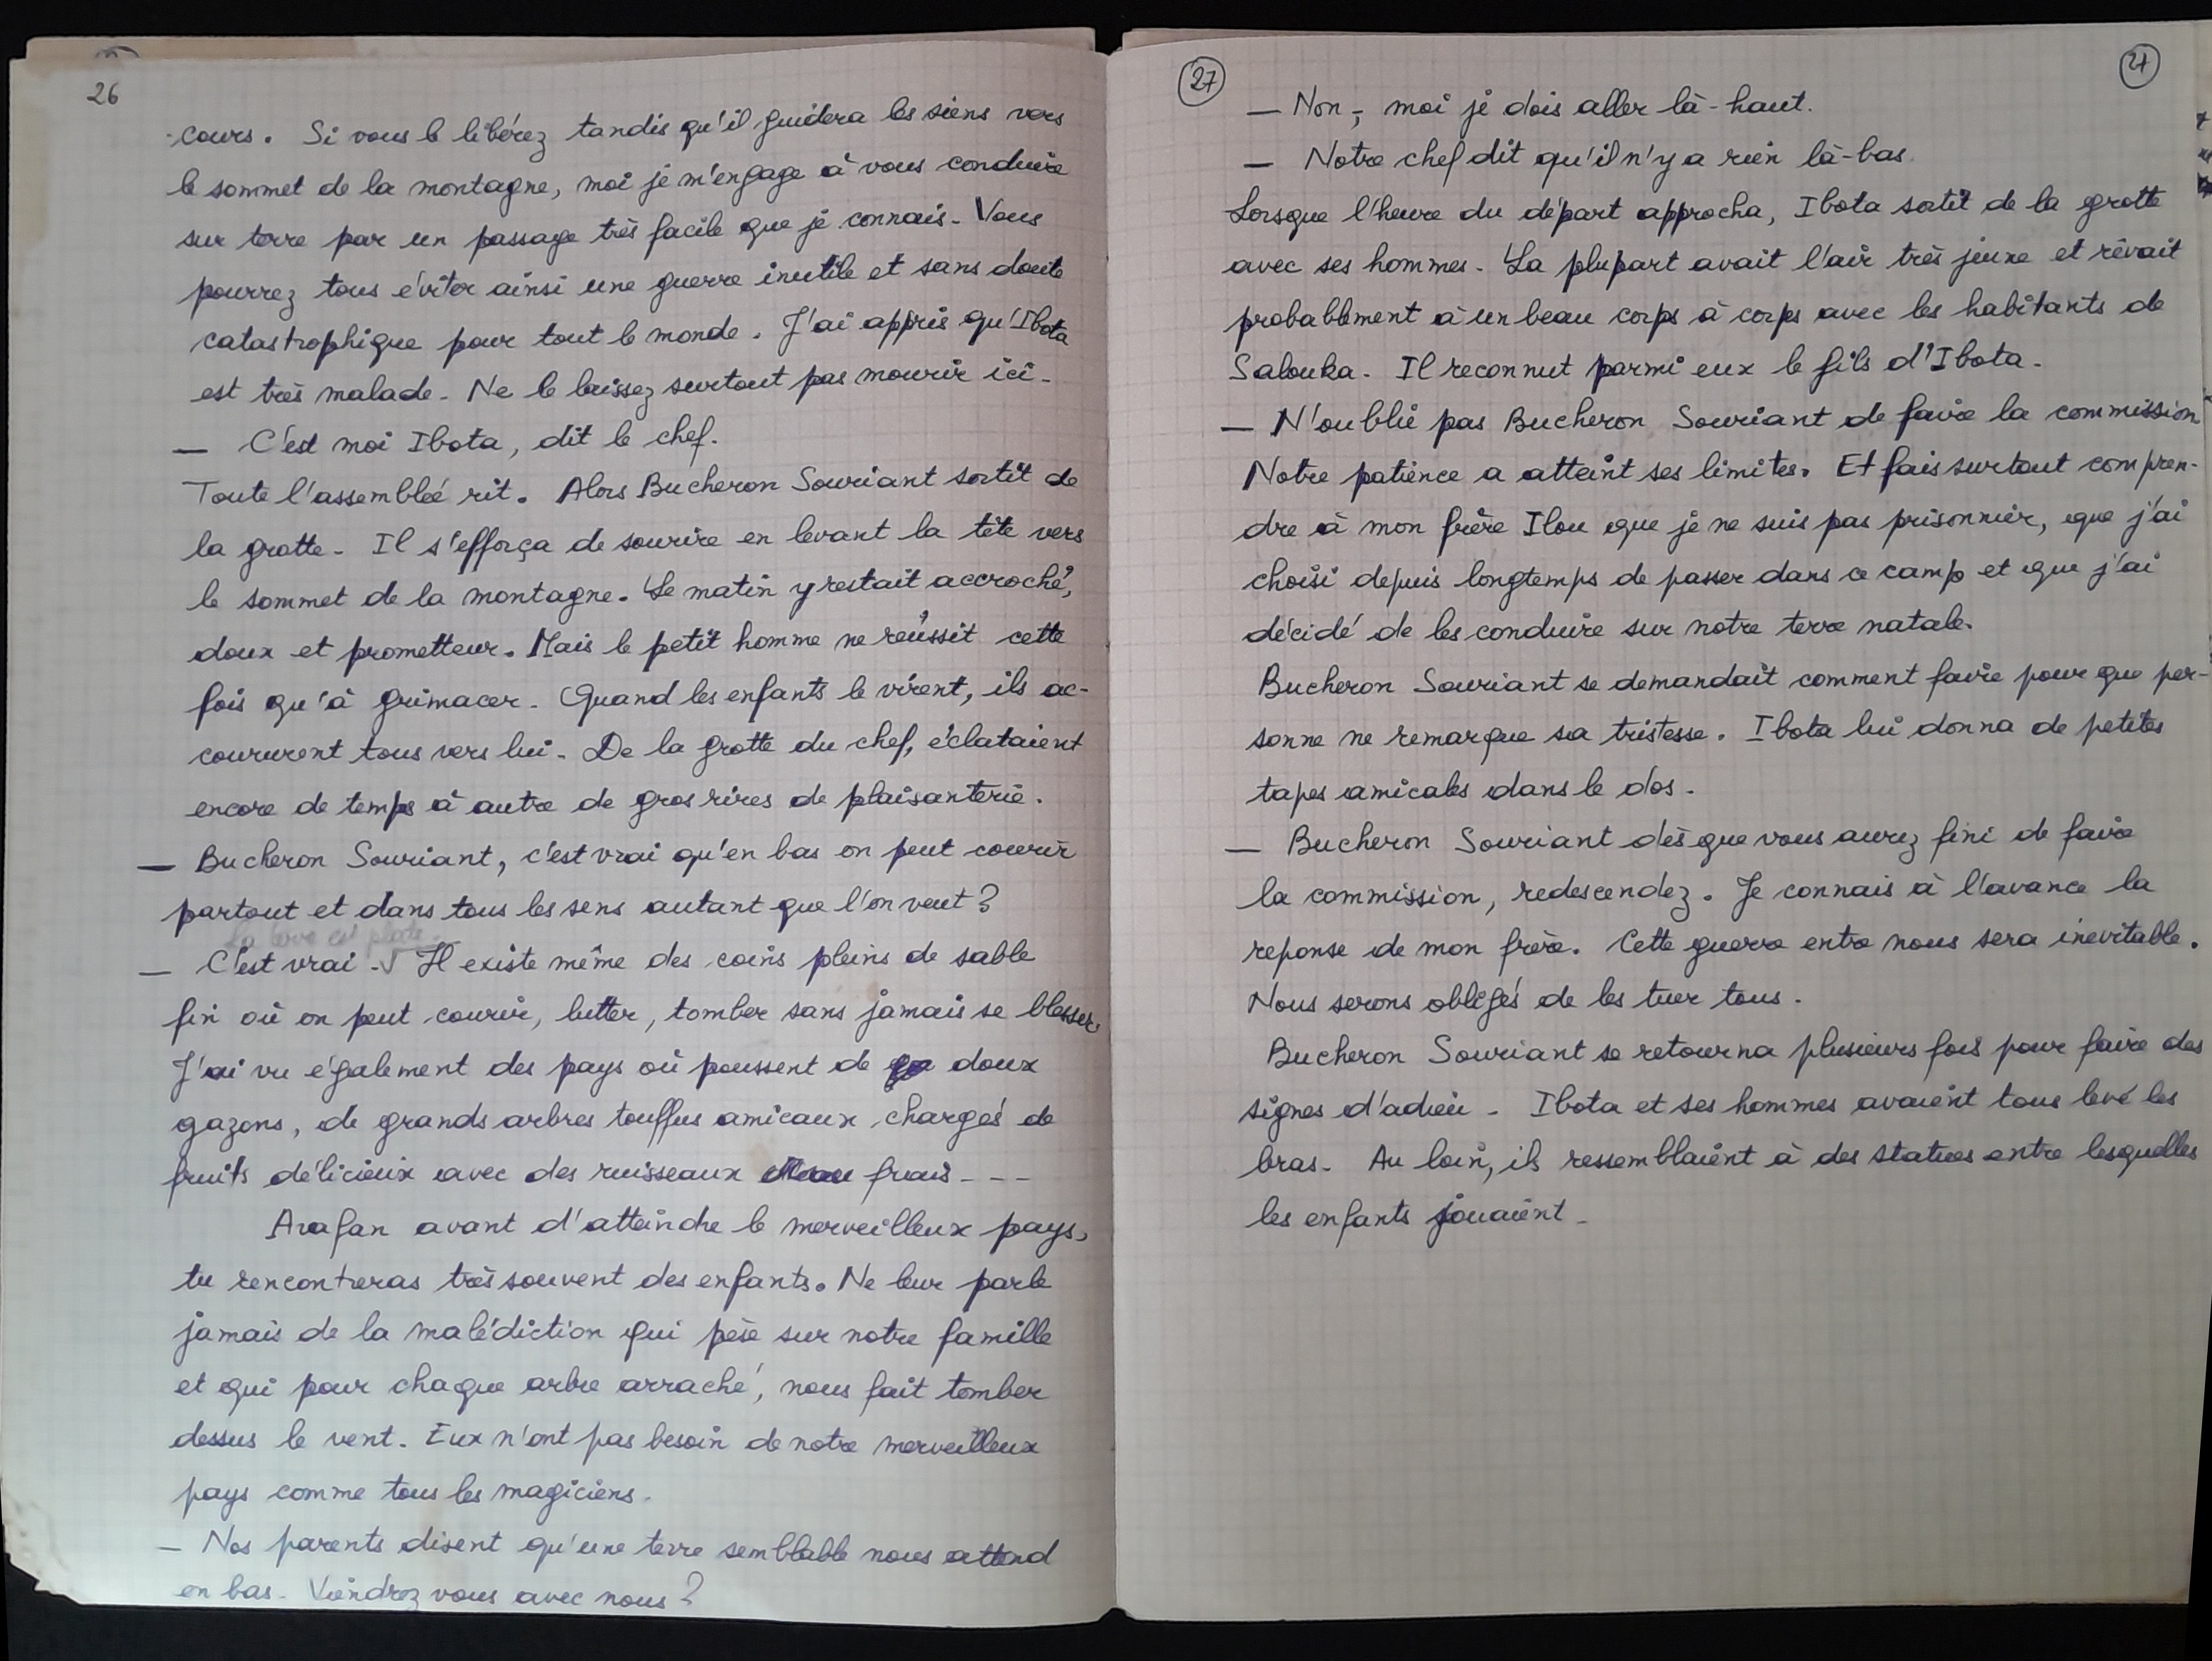 26
-cours. Si vous le libérez tandis qu'il guidera les siens vers
le sommet de la montagne, moi je m'engage à vous conduire
sur terre par un passage très facile que je connais. Vous
pourrez tous éviter ainsi une guerre inutile et sans doute
catastrophique pour tout le monde. J'ai appris qu'Ibota
est très malade. Ne le laissez surtout pas mourir ici.
— C'est moi Ibota, dit le chef.
Toute l'assemblée rit. Alors Bucheron Souriant sortit de
la grotte. Il s'efforça de sourire en levant la tête vers
le sommet de la montagne. Le matin y restait accroché,
doux et prometteur. Mais le petit homme ne réussit cette
fois qu'à grimacer. Quand les enfants le virent, ils ac-
coururent tous vers lui. De la grotte du chef, éclataient
encore de temps à autre de gros rires de plaisanterie.
— Bucheron Souriant, c'est vrai qu'en bas on peut courir
partout et dans tous les sens autant que l'on veut ?
La terre est plate.
— C'est vrai. √ Il existe même des coins pleins de sable
fin où on peut courir, lutter, tomber sans jamais se blesser.
J'ai vu également des pays où poussent de doux
gazons, de grands arbres touffus amicaux chargés de
fruits délicieux avec des ruisseaux frais - - -
Arafan avant d'atteindre le merveilleux pays,
tu rencontreras très souvent des enfants. Ne leur parle
jamais de la malédiction qui pèse sur notre famille
et qui pour chaque arbre arraché, nous fait tomber
dessus le vent. Eux n'ont pas besoin de notre merveilleux
pays comme tous les magiciens.
— Nos parents disent qu'une terre semblable nous attend
en bas. Viendrez vous avec nous ?
27
27
— Non, moi je dois aller là-haut.
— Notre chef dit qu'il n'y a rien là-bas.
Lorsque l'heure du départ approcha, Ibota sortit de la grotte
avec ses hommes. La plupart avait l'air très jeune et rêvait
probablement à un beau corps à corps avec les habitants de
Salouka. Il reconnut parmi eux le fils d'Ibota.
— N'oublie pas Bucheron Souriant de faire la commission.
Notre patience a atteint ses limites. Et fais surtout compren-
dre à mon frère Ilou que je ne suis pas prisonnier, que j'ai
choisi depuis longtemps de passer dans ce camp et que j'ai
décidé de les conduire sur notre terre natale.
Bucheron Souriant se demandait comment faire pour que per-
sonne ne remarque sa tristesse. Ibota lui donna de petites
tapes amicales dans le dos.
— Bucheron Souriant dès que vous aurez fini de faire
la commission, redescendez. Je connais à l'avance la
reponse de mon frère. Cette guerre entre nous sera inevitable.
Nous serons obligés de les tuer tous.
Bucheron Souriant se retourna plusieurs fois pour faire des
signes d'adieu. Ibota et ses hommes avaient tous levé les
bras. Au loin, ils ressemblaient à des statues entre lesquelles
les enfants jouaient.